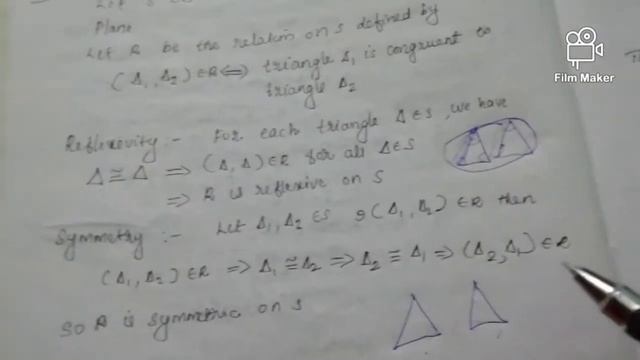 Plane
Let R be the relation on S defined by
(Δ₁, Δ₂) ∈ R ⟺ triangle Δ₁ is congruent to
triangle Δ₂
Reflexovity :- For each triangle Δ ∈ S, we have
Δ ≅ Δ ⟹ (Δ, Δ) ∈ R for all Δ ∈ S
⟹ R is reflexive on S
Symmetry :- Let Δ₁, Δ₂ ∈ S (Δ₁, Δ₂) ∈ R then
(Δ₁, Δ₂) ∈ R ⟹ Δ₁ ≅ Δ₂ ⟹ Δ₂ ≅ Δ₁ ⟹ (Δ₂, Δ₁) ∈ R
So R is symmetric on S
Film Maker